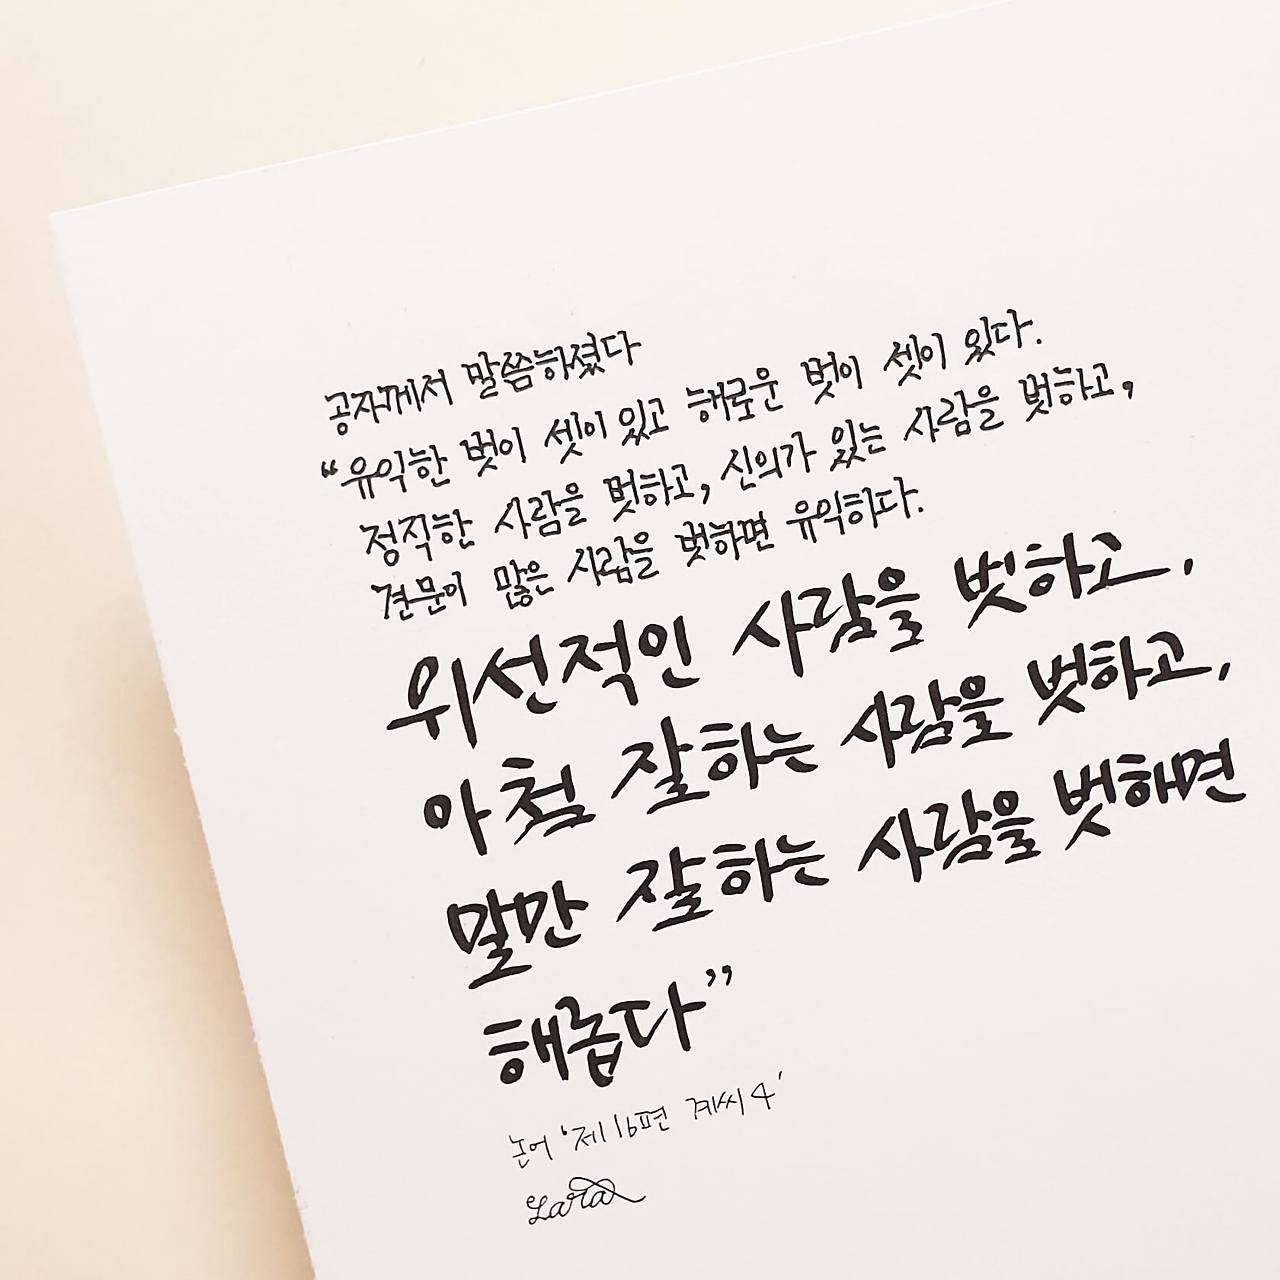 공자께서 말씀하셨다
“유익한 벗이 셋이 있고 해로운 벗이 셋이 있다.
정직한 사람을 벗하고, 신의가 있는 사람을 벗하고,
견문이 많은 사람을 벗하면 유익하다.
위선적인 사람을 벗하고,
아첨 잘하는 사람을 벗하고,
말만 잘하는 사람을 벗하면
해롭다”
논어 '제16편 계씨 4'
Lara